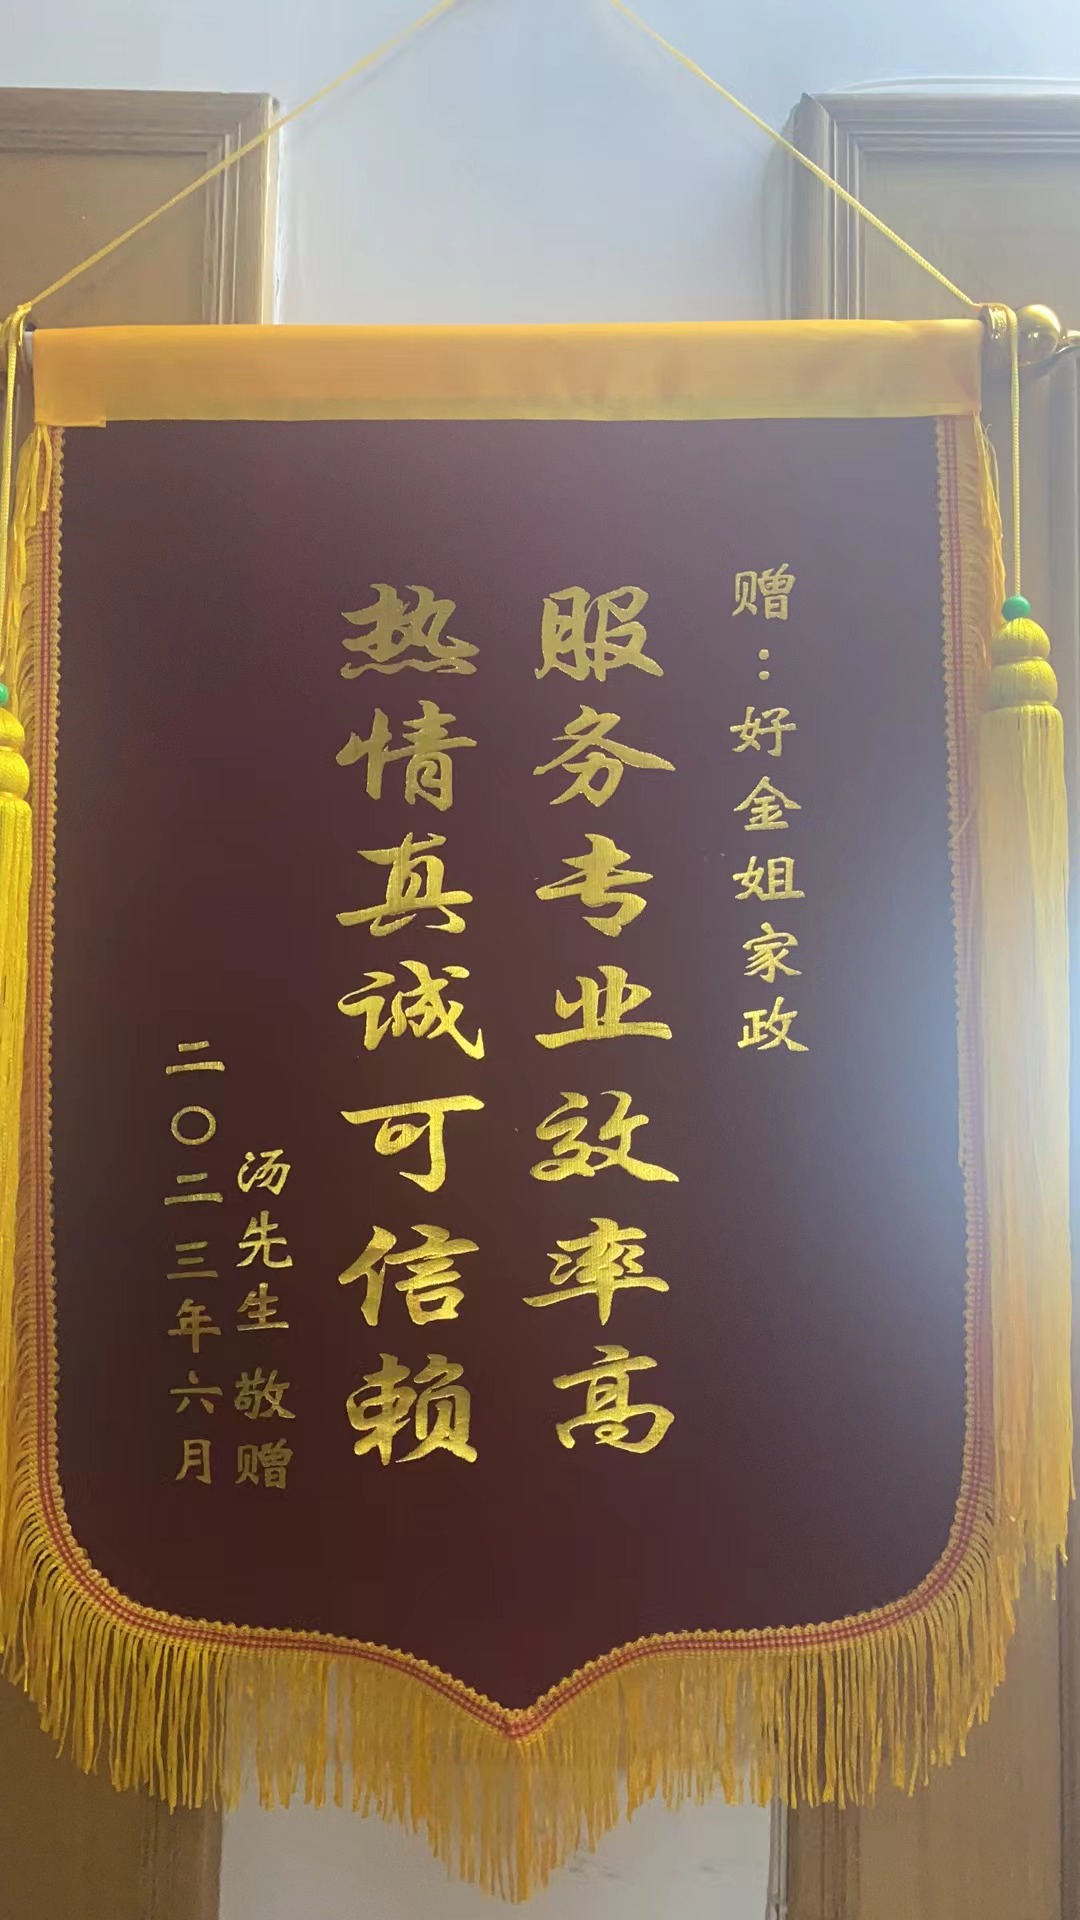 赠：好金姐家政
服务专业效率高
热情真诚可信赖
汤先生 敬赠
二〇二三年六月